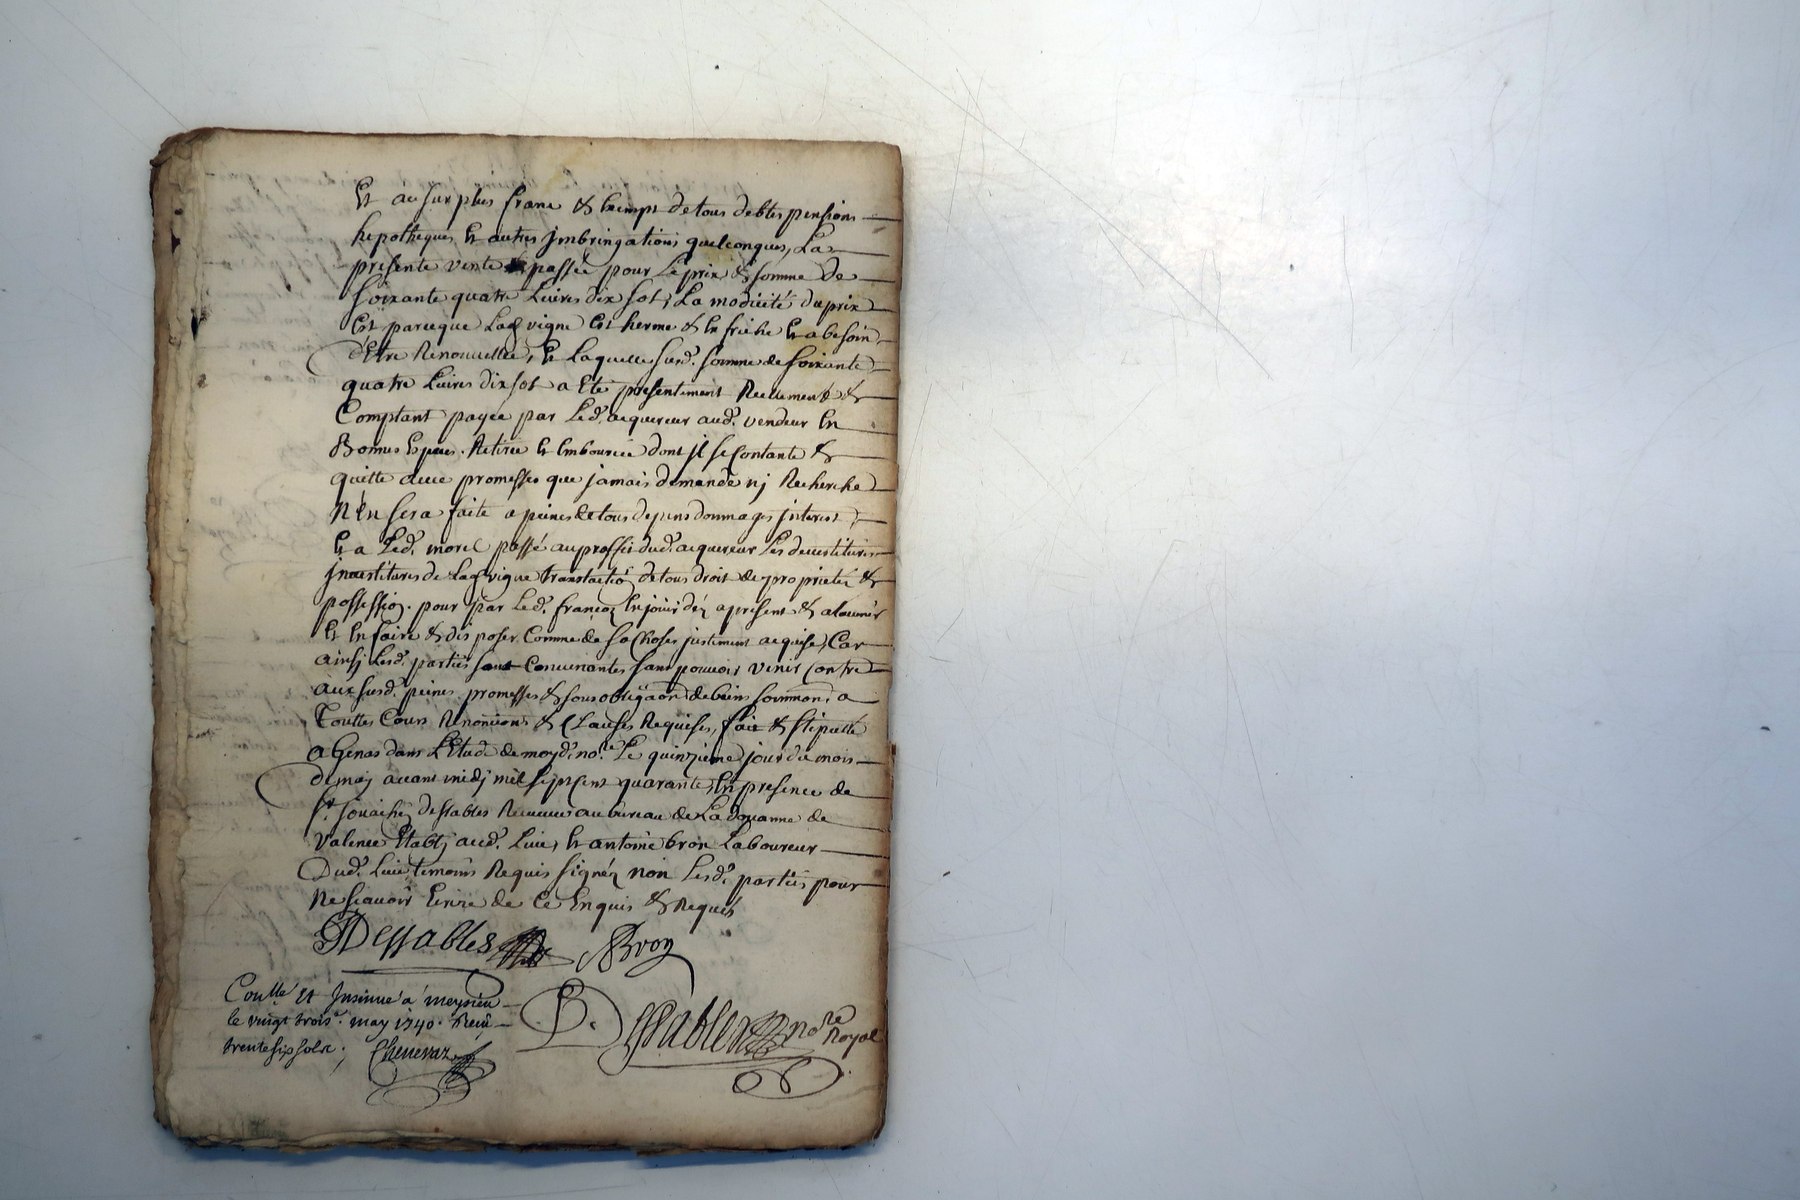 Et au surplus franc & exempt de tous debtes pensions
hepotheques et autres jmbringations quelconques, La
presente vente passée pour Le prix & somme de
soixante quatre Livres dix sol, La modicité du prix
Est parceque Lad. vigne Est herme & En friche Et a besoin
d'Etre Renouvellée, Et Laquelle susd. somme de soixante
quatre Livres dix sol a Eté presentement Reellement &
Comptant payée par Led. acquereur aud. vendeur En
Bonnes Especes. Retirée et Embourcée dont jl se Contante &
quitte avec promesses que jamais demande nj Recherche
N'En sera faite a peines de tous depens dommages jnterest
Et a Led. morel passé au proffit dud. acquereur Les devestitures
jnvestitures de Lad. vigne translation de tous droit de proprieté &
possession. pour par Led. françois En jouir dez apresent & a Lavenir
Et En faire & disposer Comme de sa Chose justement acquise, Car
ainsj Lesd. parties sont Convenantes sans pouvoir venir Contre
aux susd. peines promesses & sous obligaon de biens soummon. a
Touttes Cours Renonciaons & Clauses Requises, fait & stipullé
a Genas dans L'Etude de moyd. nore. Le quinzieme jour du mois
de maj avant midj mil sept sent quarante, En presence de
sr. jouachin dessables Receveur au bureau de La douanne de
valence Etablj aud. Lieu, Et antoine bron Laboureur
Dud. Lieu temoins Requis signéz non Lesd. parties pour
Ne sçavoir Ecrire de Ce Enquis & Requis
JDessables ABron
Conllé et Insinué a meysieu
le vingt trois e. may 1740. Receu
trente six sols. Chenevaz
D. Essables nore Royal